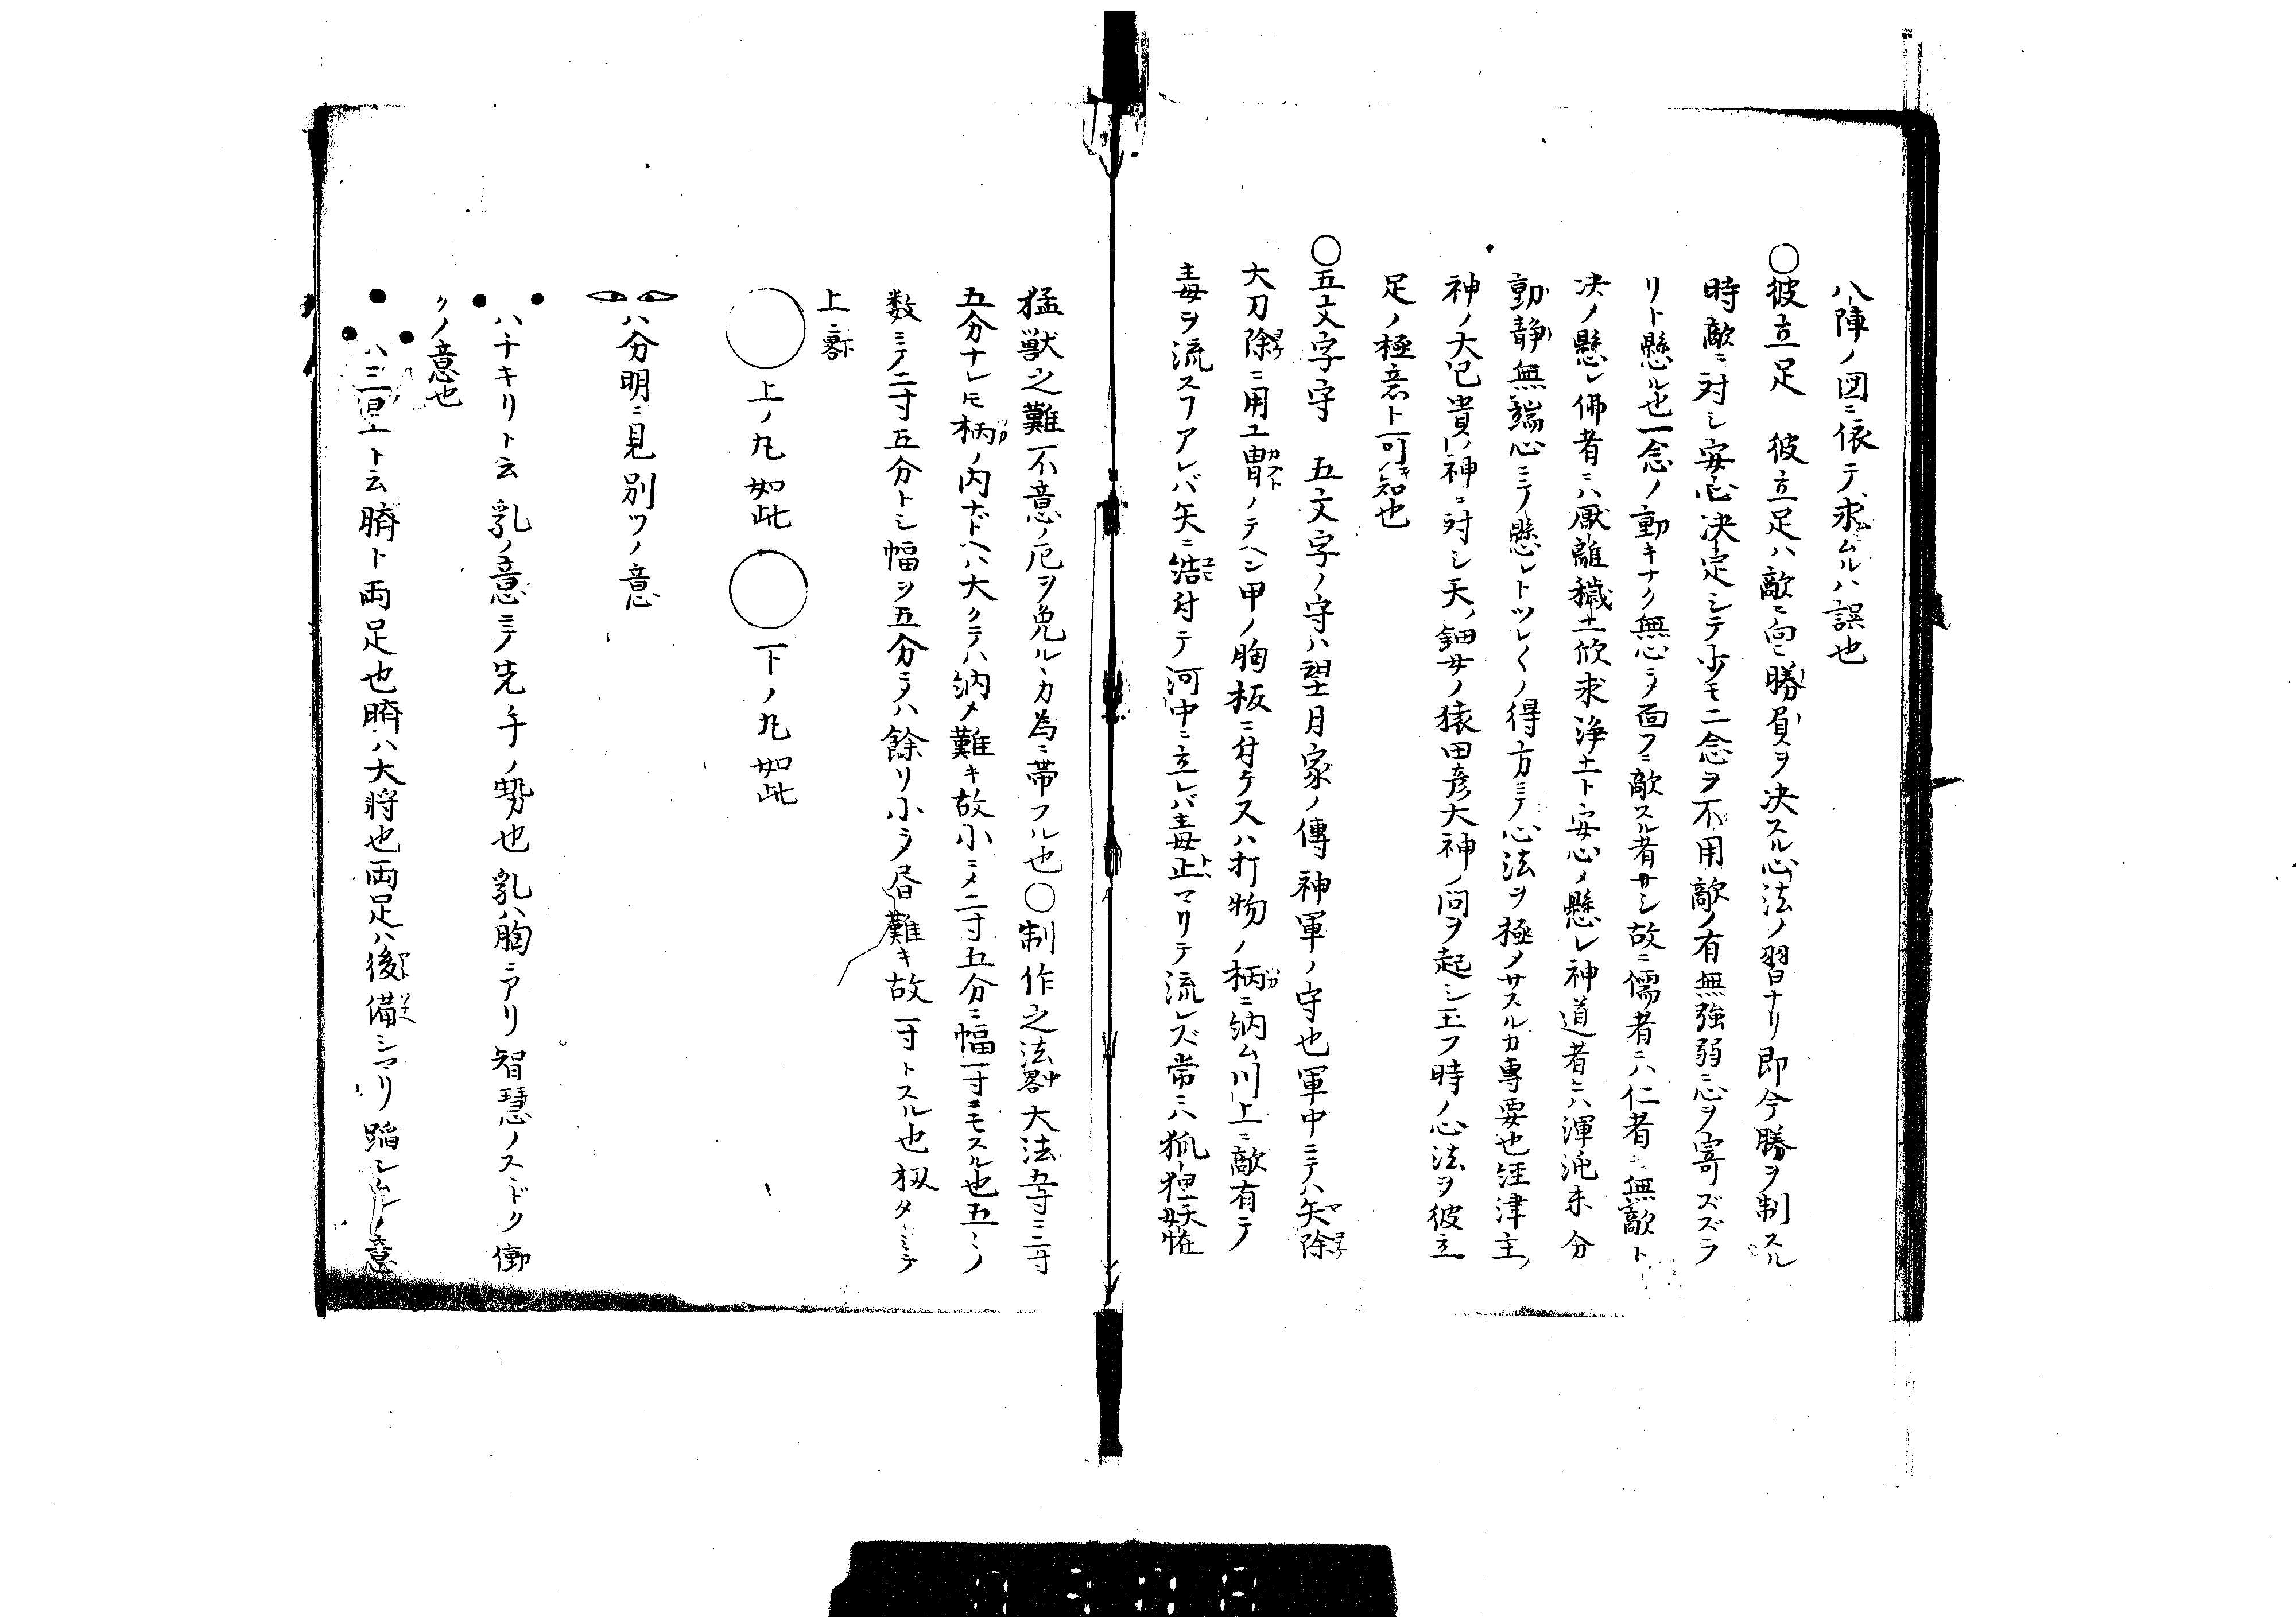 八陣ノ図ニ依テ求ムルハ誤也
〇彼立足　彼立足ハ敵ニ向ニ勝負ヲ决スル心法ノ習ナリ即今勝ヲ制スル
時敵ニ対シ安心决定シテ少モ二念ヲ不用敵ノ有無強弱ニ心ヲ寄ズズラ
リト懸ル也一念ノ動キナク無心ニメ面フニ敵スル者ナシ故ニ儒者ニハ仁者ニ無敵ト
决ノ懸レ佛者ニハ厭離穢土欣求浄土ト安心メ懸レ神道者ニハ渾沌未分
動静無端心ニテ懸レトツレ〱ノ得方ニテ心法ヲ極メサスルカ專要也経津主ノ
神ノ大已貴ノ神ニ対シ天ノ鈿女ノ猿田彦大神ノ問ヲ起シ玉フ時ノ心法ヲ彼立
足ノ極意ト可キ知也
〇五文字守　五文字ノ守ハ望月家ノ傳神軍ノ守也軍中ニテハ矢除
大刀除ニ用ユ冑ノテヘン甲ノ胸板ニ付テ又ハ打物ノ柄ニ納ム川上ニ敵有テ
毒ヲ流スヿアレバ矢ニ結付テ河中ニ立レバ毒止マリテ流レズ常ニハ狐狸妖怪
猛獣之難不意ノ厄ヲ免ルヽカ為ニ帯フル也〇制作之法畧中大法五寸ニ二寸
五分ナレ𪜈柄ノ内ナドヘハ大クテハ納メ難キ故小ニメ二寸五分ニ幅一寸ニモスル也五ミノ
数ミテ二寸五分トシ幅ヲ五分ニテハ餘リ小ラ昼難キ故一寸トスル也扨タヽミテ
上ニ畧下
上ノ丸如此　下ノ丸如此
ハ分明ニ見別ツノ意
ハチキリト云乳ノ意ニテ先手ノ勢也乳ハ胸ニアリ智慧ノスヽドク働
クノ意也
ハ三星ト云臍ト両足也臍ハ大将也両足ハ後備シマリ蹈シムルノ意